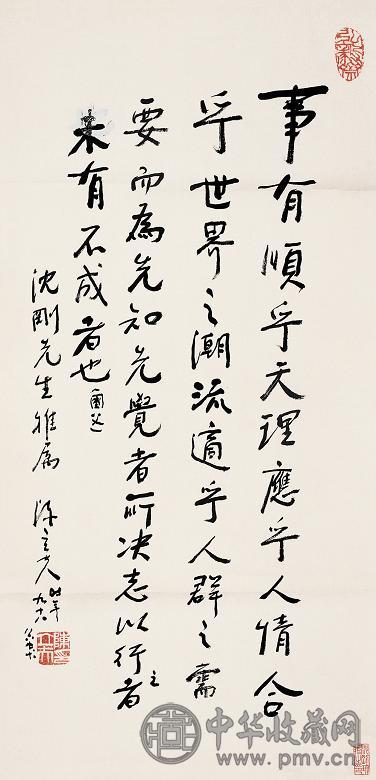 事有順乎天理應乎人情合
乎世界之潮流適乎人群之需
要而為先知先覺者所决志以行之者
未有不成者也（國父）
沈剛先生雅屬 陳立夫 時年九十八
中华收藏网
www.pmv.cn